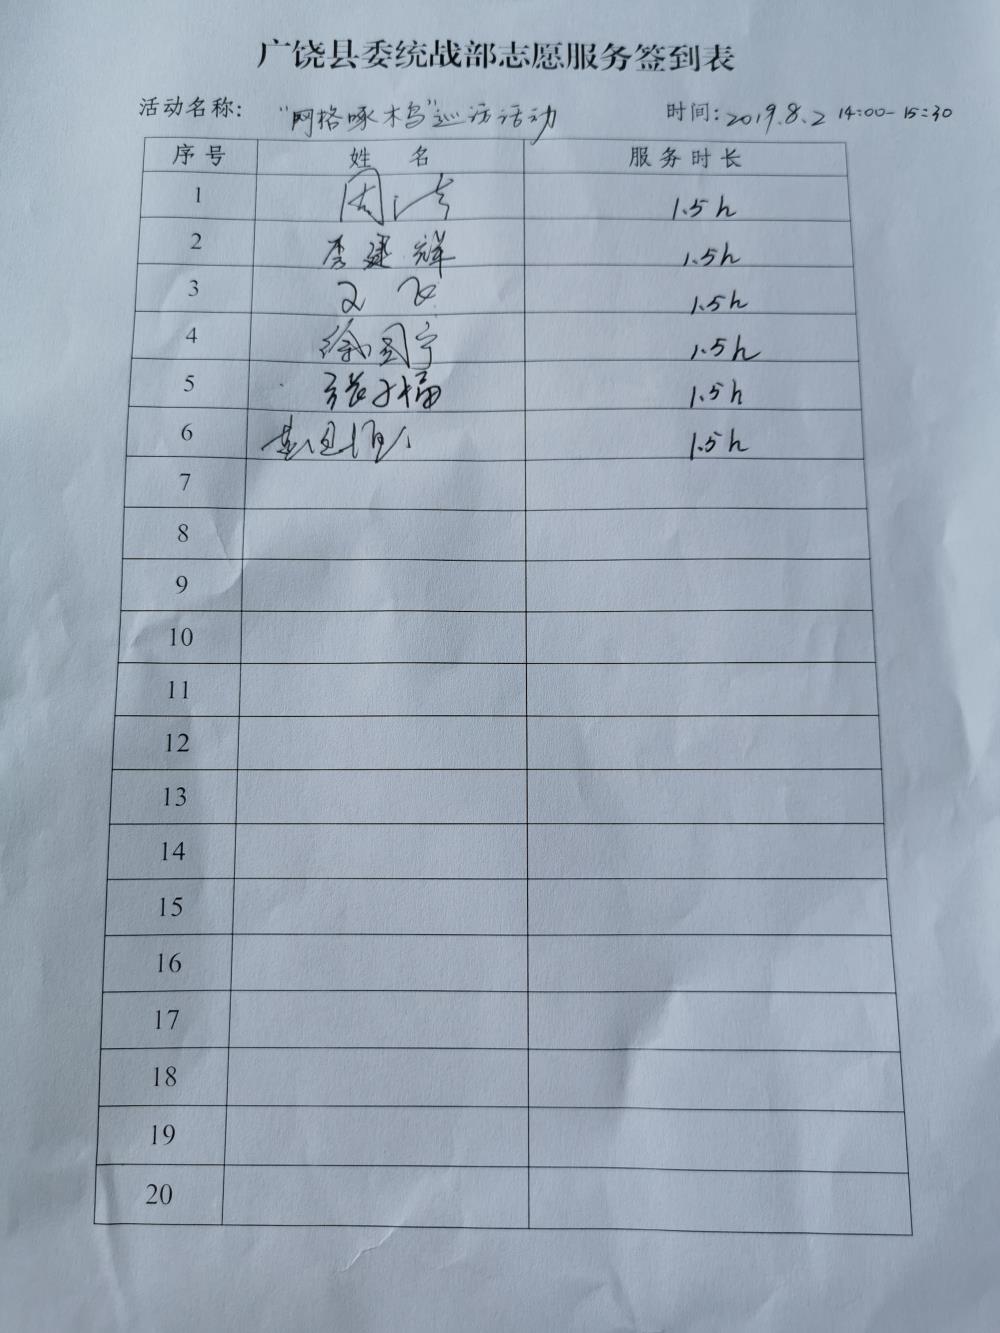 广饶县委统战部志愿服务签到表
活动名称: "网格啄木鸟"巡访活动 时间: 2019.8.2 14:00-15:30
序号 姓 名 服务时长
1 周 1.5h
2 李建辉 1.5h
3 1.5h
4 徐国宁 1.5h
5 张子福 1.5h
6 1.5h
7
8
9
10
11
12
13
14
15
16
17
18
19
20